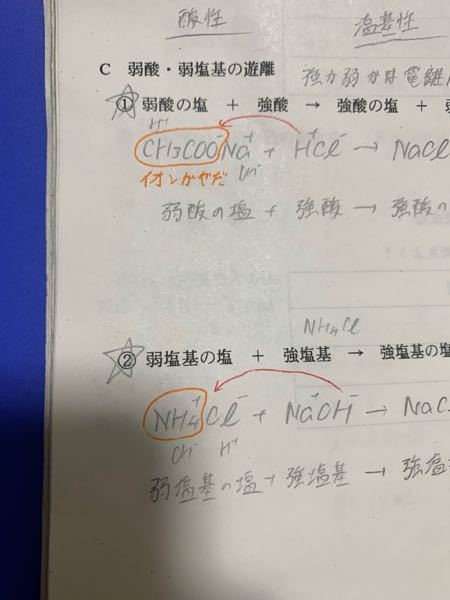 酸性 塩基性
C 弱酸・弱塩基の遊離 強か弱かは電離
① 弱酸の塩 + 強酸 → 強酸の塩 + 弱
H⁺
CH3COO⁻Na⁺ + H⁺Cl⁻ → NaCl
イオンがやだ OH⁻
弱酸の塩 + 強酸 → 強酸の
NH4Cl
② 弱塩基の塩 + 強塩基 → 強塩基の塩
NH4⁺Cl⁻ + Na⁺OH⁻ → NaC
OH⁻ H⁺
弱塩基の塩 + 強塩基 → 強塩